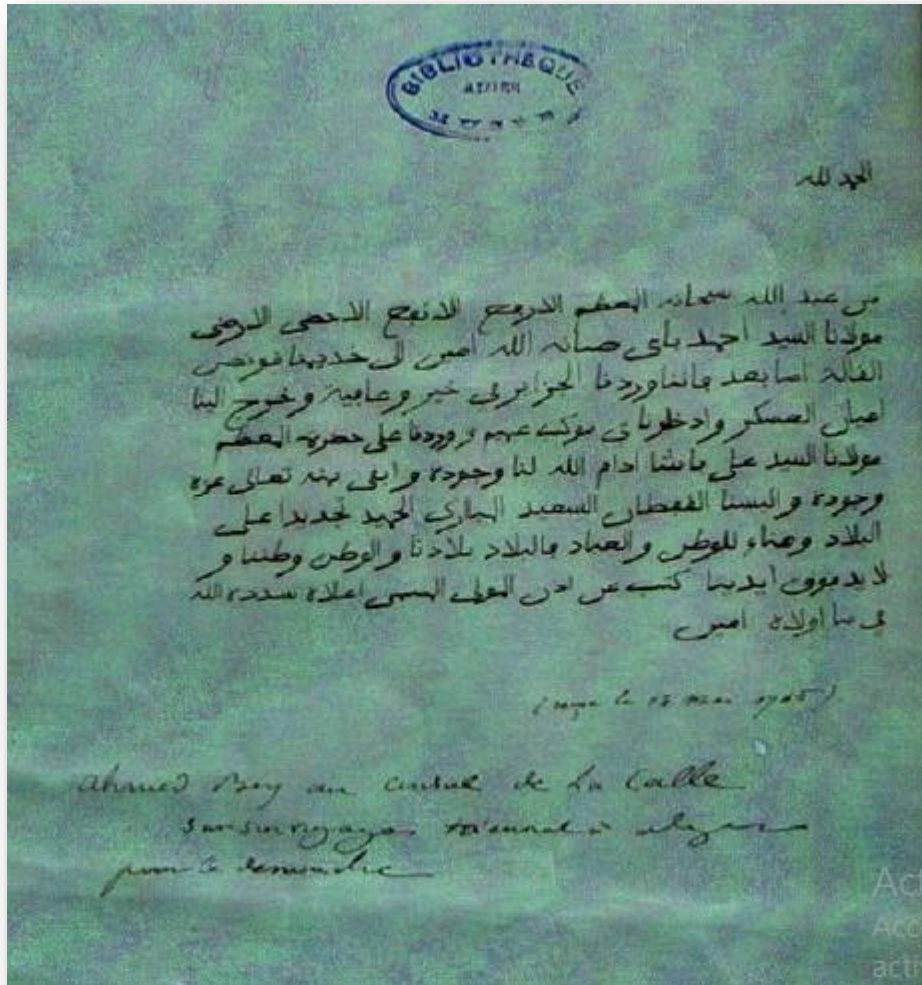 BIBLIOTHEQUE
ALGER
الحمد لله
من عبد الله سبحانه المعظم الارفع الانجح الاحضى الارضى
مولانا السيد احمد باي صانه الله امين الى خديمنا قونص
القالة اما بعد فاننا وردنا الجزاير في خير وعافية وخرج الينا
اهيل العسكر وادخلونا في موكب عهيم ووردنا على حضرة المعظم
مولانا السيد علي باشا ادام الله لنا وجوده وابقى بمنه تعالى عزه
وجوده والبسنا القفطان السعيد المبارك الحميد تجديدا على
البلاد وهناء للوطن والعباد فالبلاد بلادنا والوطن وطننا و
لا يد فوق ايدينا كتب عن اذن المولى المسمى اعلاه سدده الله
في ما اولاه امين
(reçu le 12 mai 1765)
Ahmed Bey au consul de La Calle
sur son voyage triennal à Alger
pour le